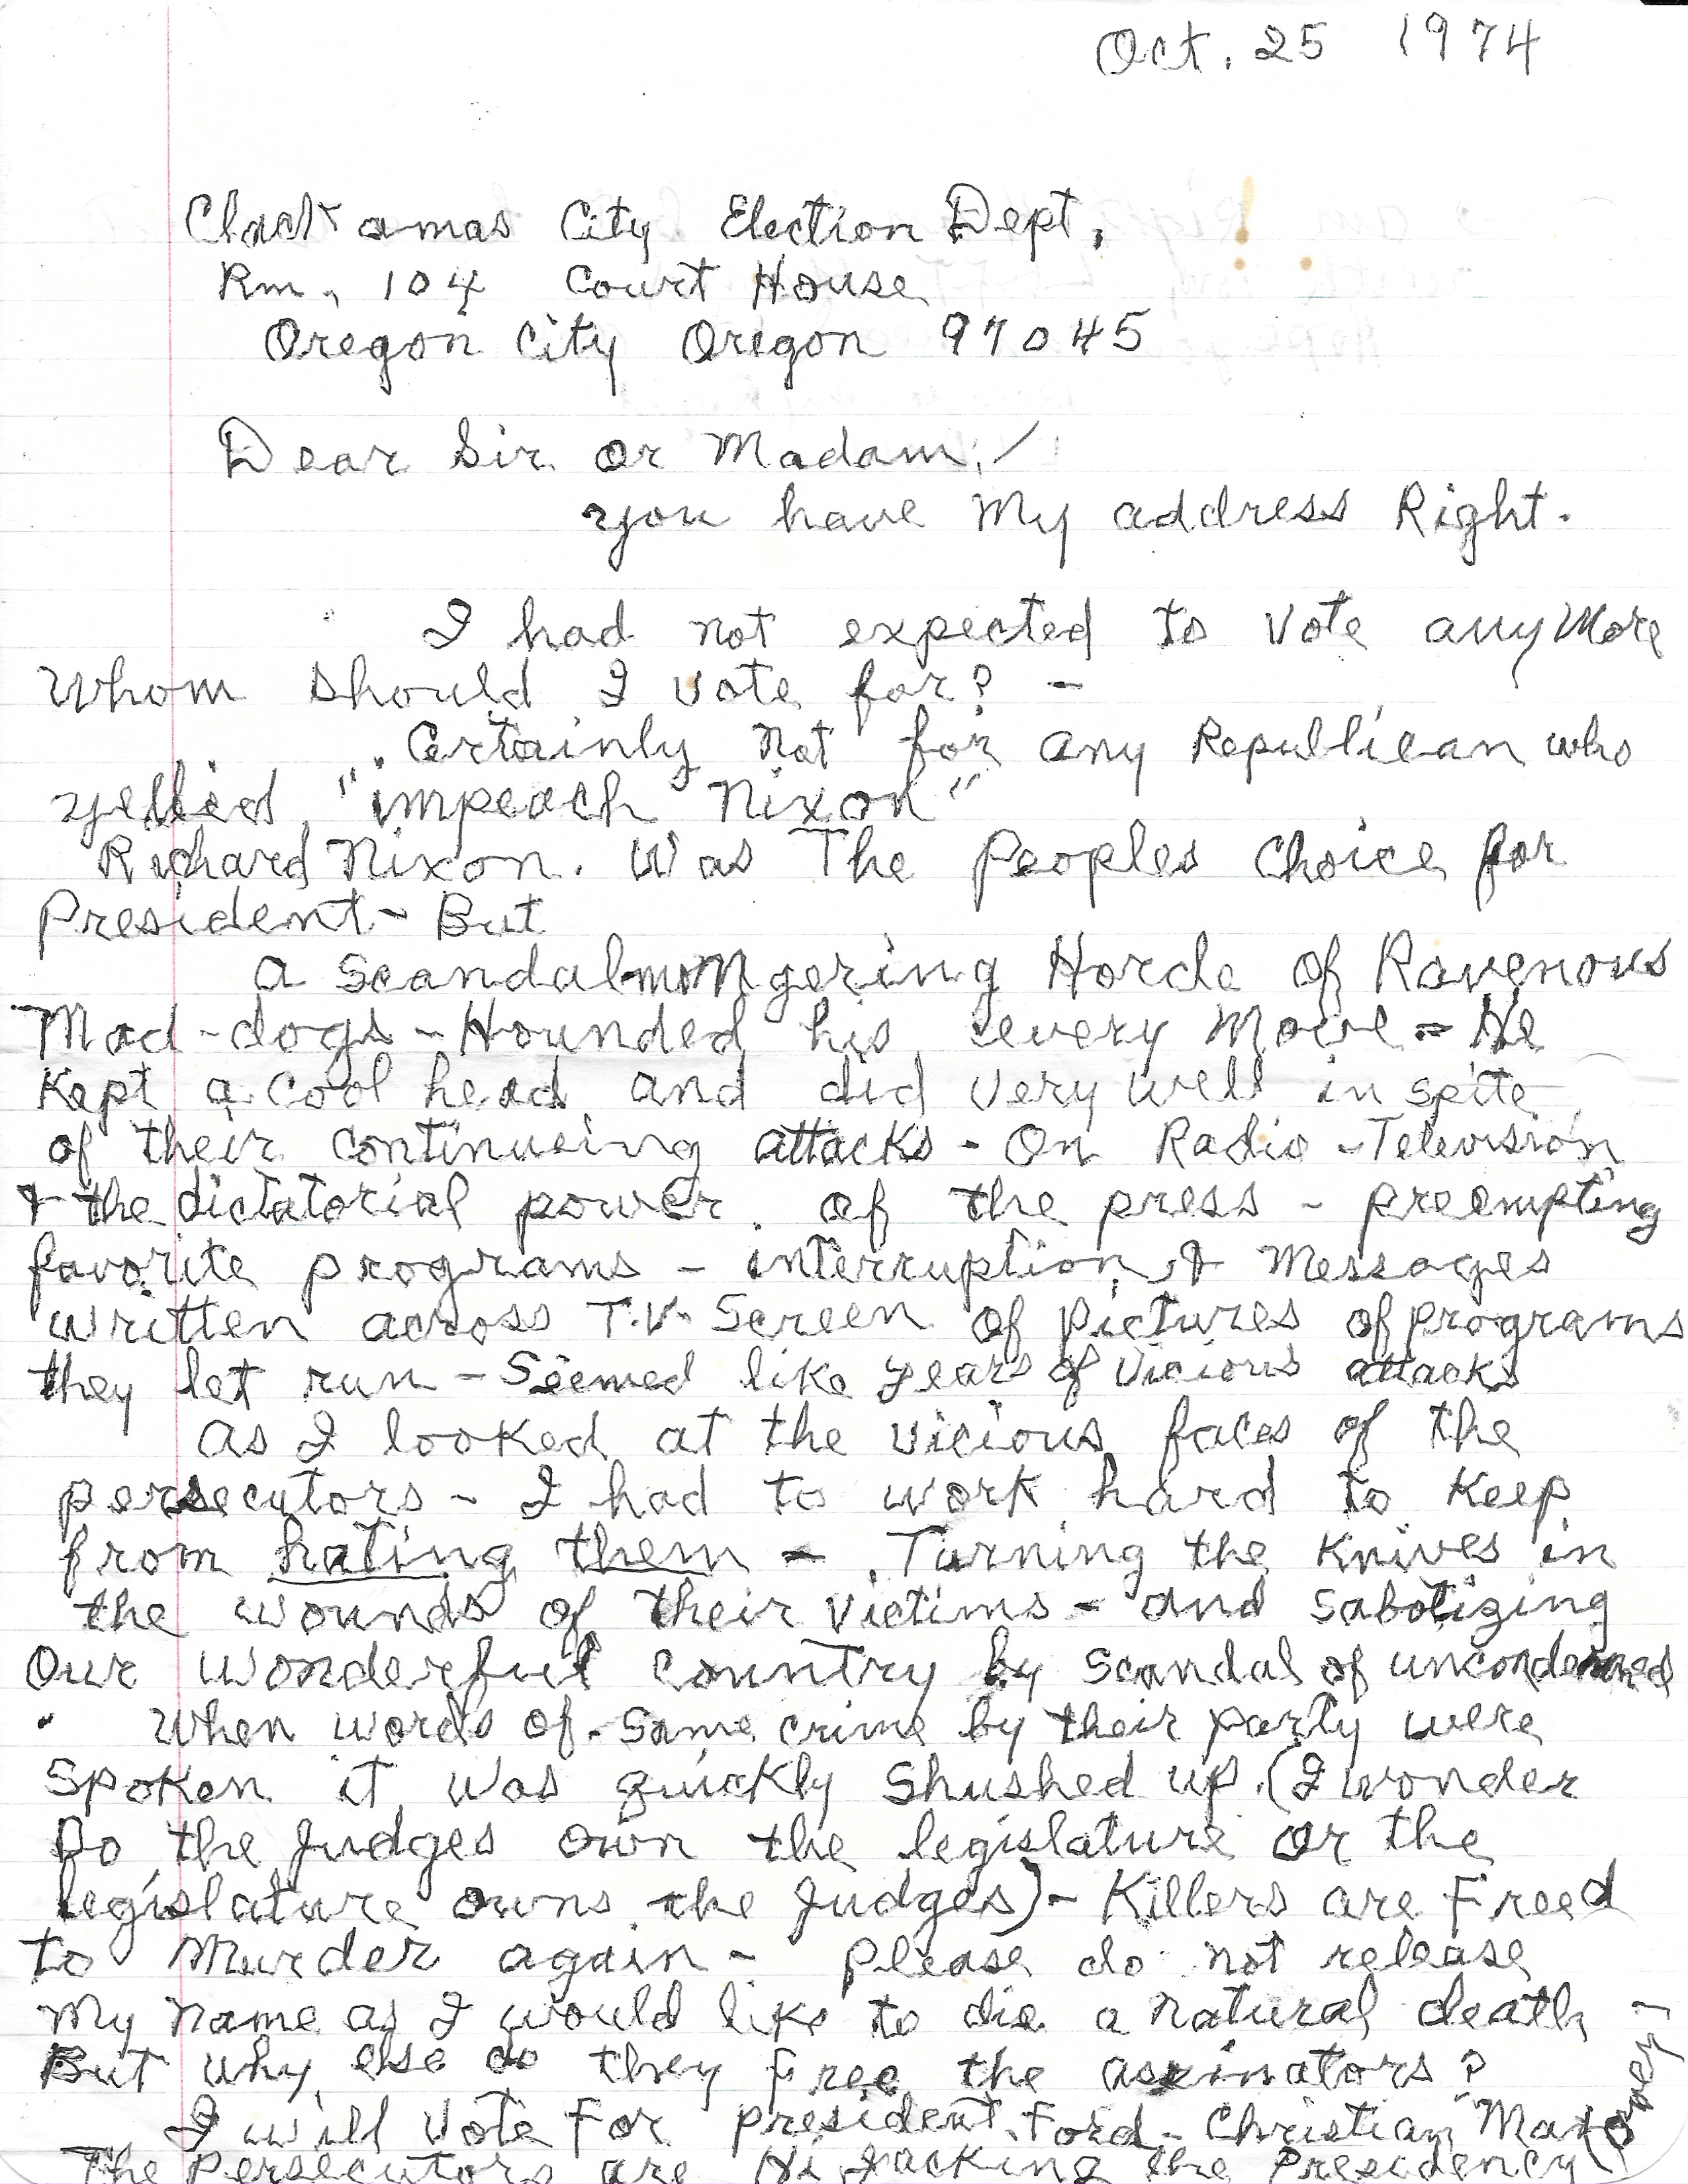 Oct. 25 1974
Clackamas City Election Dept.
Rm. 104 Court House
Oregon City Oregon 97045
Dear Sir or Madam;
you have My address Right.
I had not expected to Vote anyMore
Whom should I vote for? -
Certainly Not for any Republican who
yelled "impeach Nixon"
Richard Nixon. Was The Peoples Choice for
President - But
a Scandalmongering Horde of Ravenous
Mad-dogs - Hounded his every Move - He
Kept a Cool head and did Very well in spite
of their continueing attacks - On Radio - Television
& the dictatorial power of the press - preempting
favorite programs - interruption & Messages
written across T.V. Screen of pictures of programs
they let run - Seemed like years of Vicious attacks
As I looked at the vicious faces of the
persecutors - I had to work hard to Keep
from hating them - Turning the Knives in
the wounds of their Victims - and Sabotizing
Our Wonderful Country by Scandal of uncondemned
When words of same crime by their party were
Spoken it was quickly Shushed up. (I wonder
Do the Judges own the legislature or the
legislature owns the Judges) - Killers are Freed
to Murder again - Please do not release
My Name as I would like to die a Natural death -
But why else do they Free the assinators?
I will Vote For President Ford - Christian Man
The Persecutors are Hi Jacking the Presidency